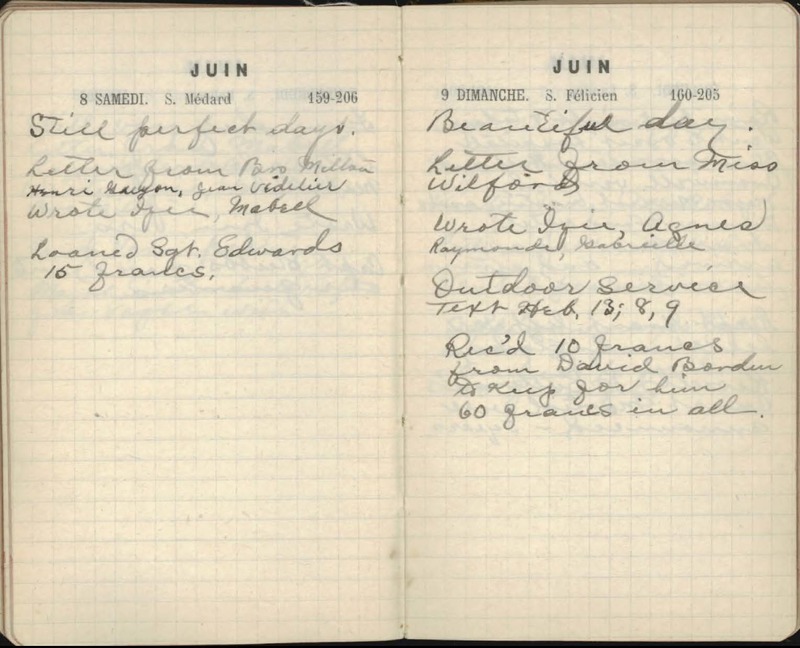 JUIN
8 SAMEDI. S. Médard 159-206
Still perfect days.
Letter from Bro Millan
Henri Gaugon, Jean Videlier
Wrote Izie, Mabell
Loaned Sgt. Edwards
15 francs.
JUIN
9 DIMANCHE. S. Félicien 160-205
Beautiful day.
Letter from Miss
Wilford
Wrote Izie, Agnes
Raymonde, Gabrielle
Outdoor Service
Text Heb. 13; 8, 9
Rec'd 10 francs
from David Borden
to keep for him
60 francs in all.